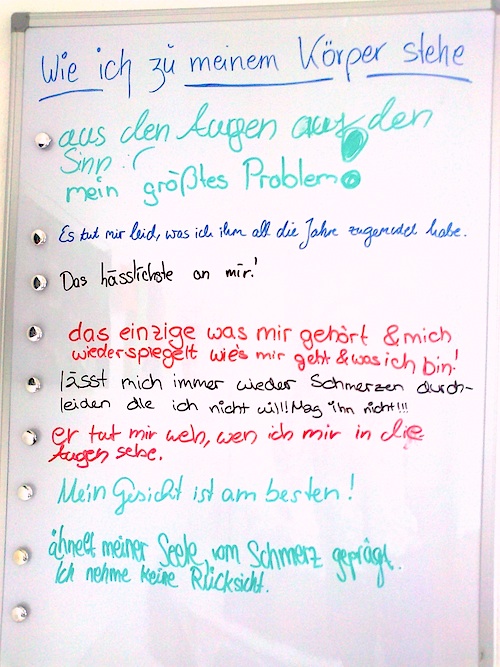 Wie ich zu meinem Körper stehe
aus den Augen aus den
Sinn :(
mein größtes Problem!
Es tut mir leid, was ich ihm all die Jahre zugemutet habe.
Das hässlichste an mir!
das einzige was mir gehört & mich
wiederspiegelt wies mir geht & was ich bin!
lässt mich immer wieder Schmerzen durch-
leiden die ich nicht will! Mag ihn nicht!!!
er tut mir weh, wen ich mir in die
Augen sehe.
Mein Gesicht ist am besten!
ähnelt meiner Seele, vom Schmerz geprägt.
Ich nehme keine Rücksicht.